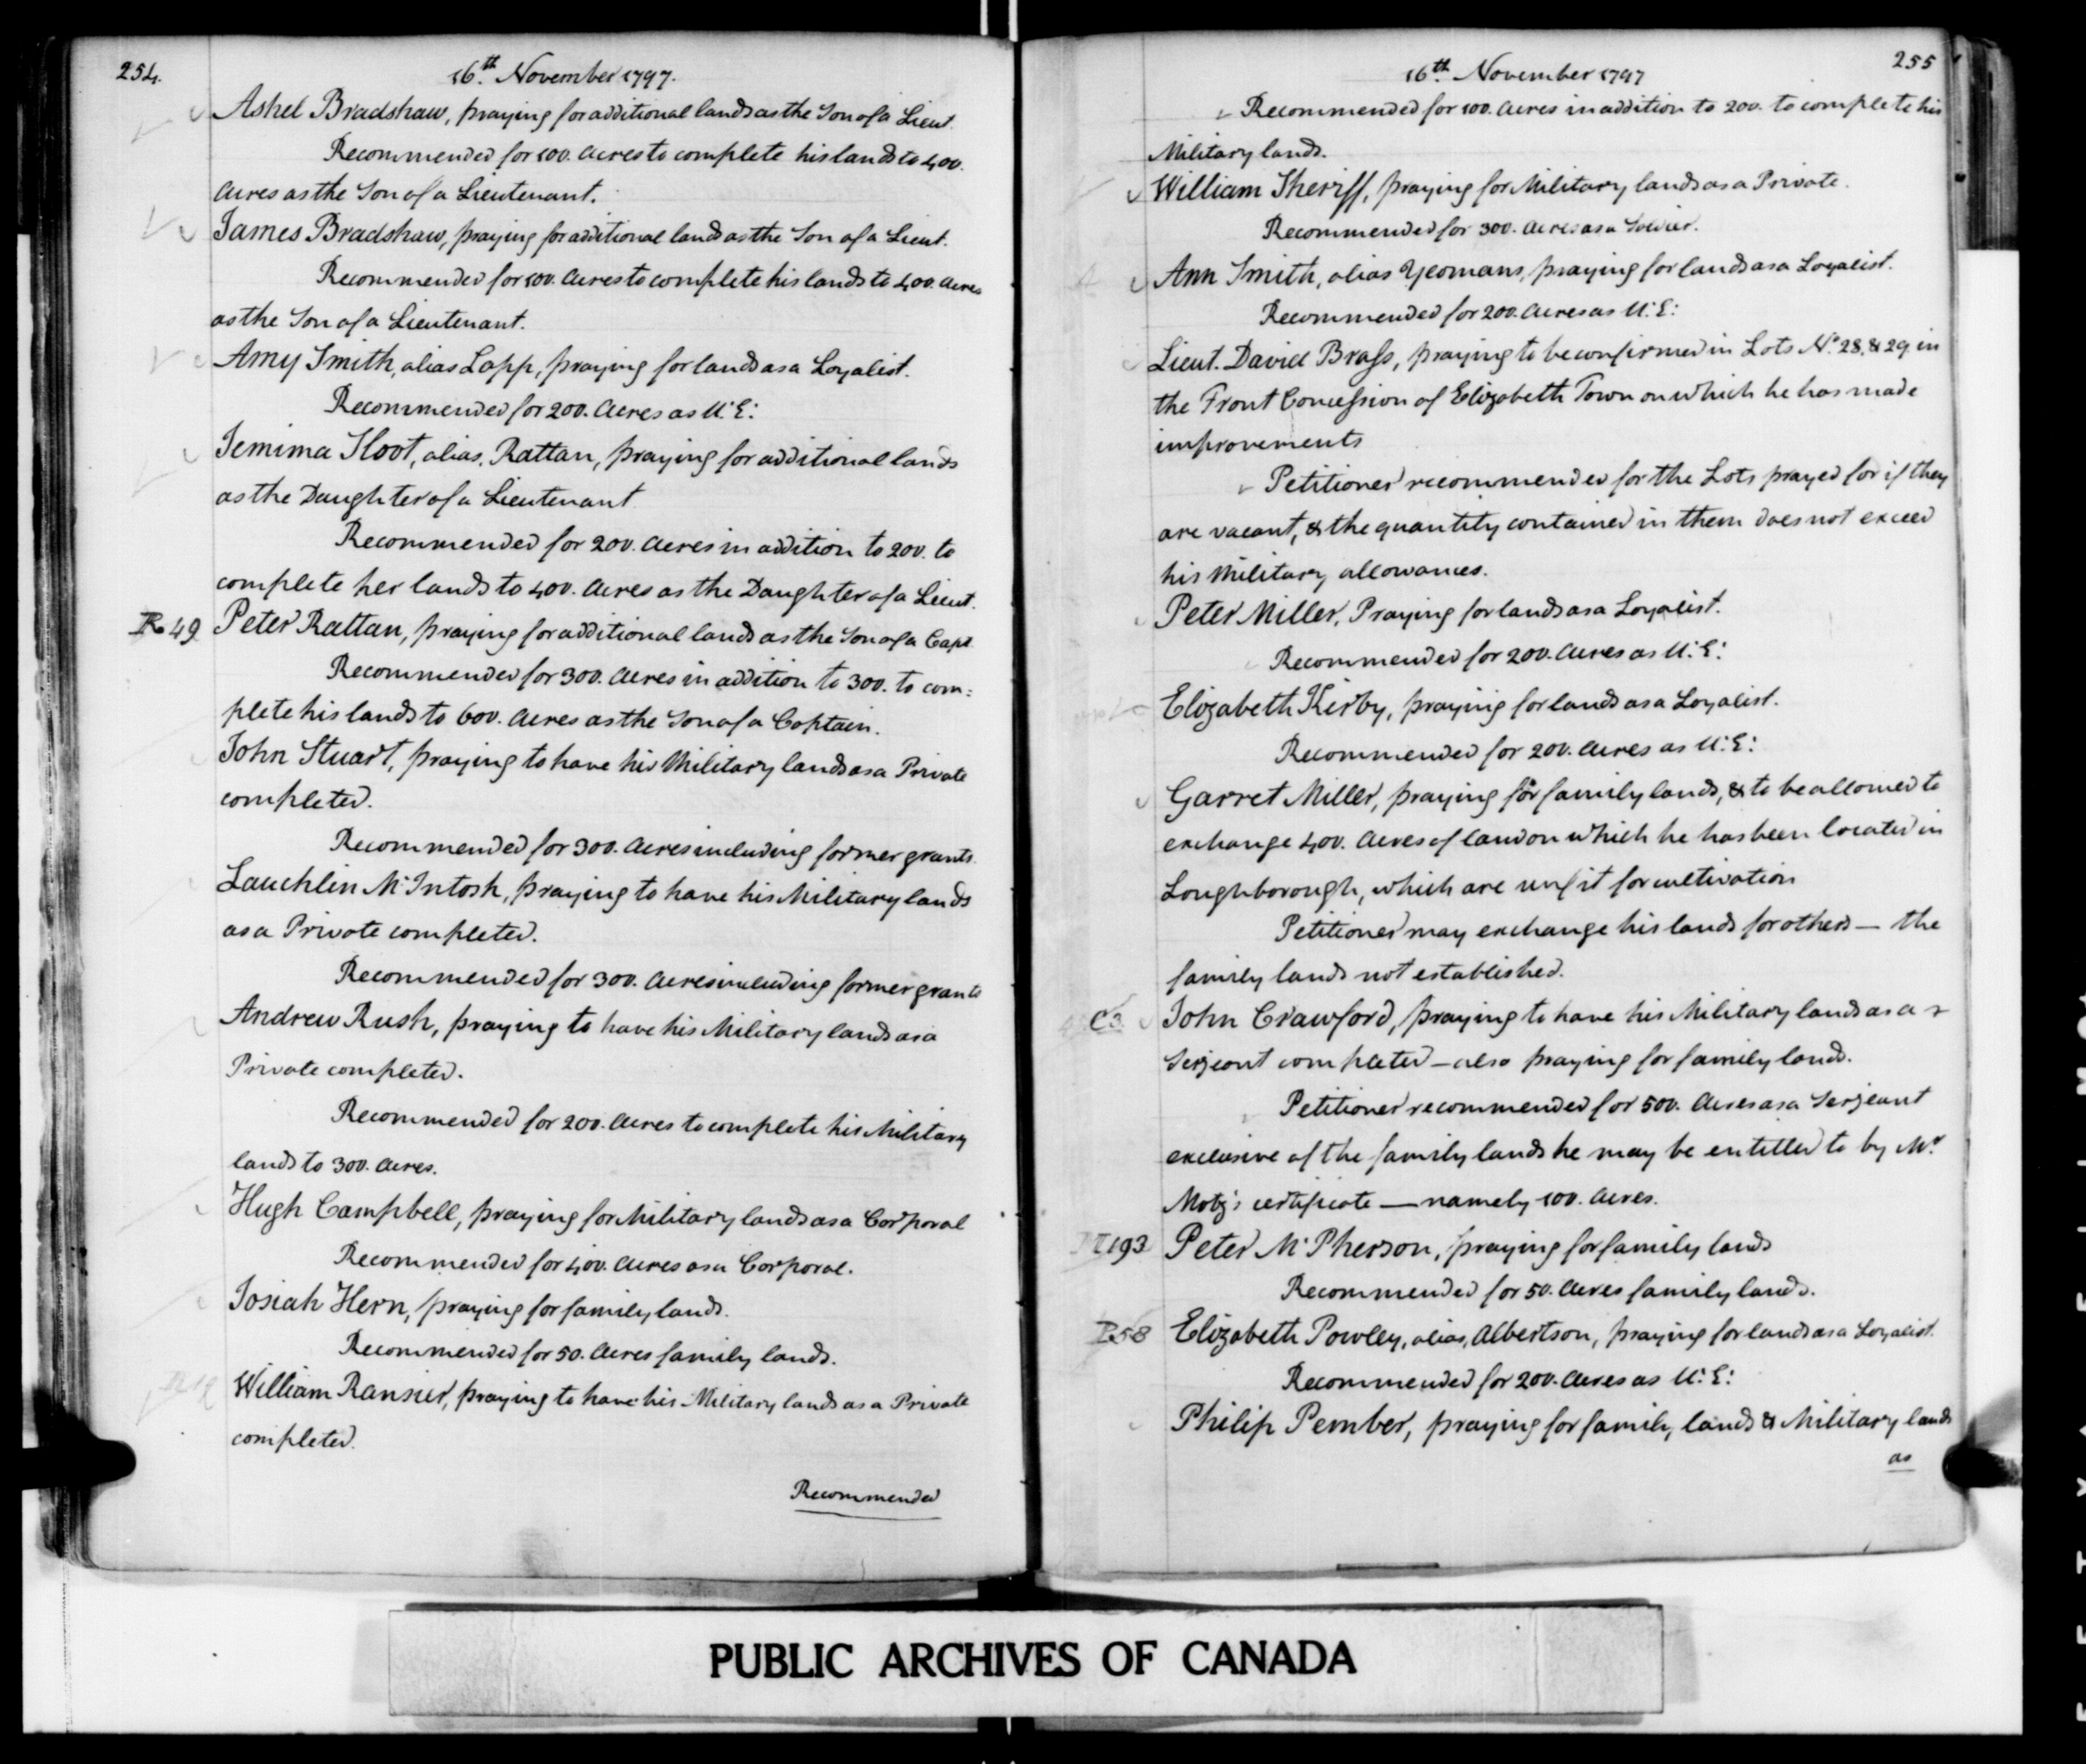 254.
16th November 1797.
Ashel Bradshaw, praying for additional lands as the Son of a Lieut.
Recommended for 100. Acres to complete his lands to 400.
Acres as the Son of a Lieutenant.
James Bradshaw, praying for additional lands as the Son of a Lieut.
Recommended for 100. Acres to complete his lands to 400. Acres
as the Son of a Lieutenant.
Amy Smith, alias Lapp, praying for lands as a Loyalist.
Recommended for 200. Acres as U.E:
Jemima Sloot, alias, Rattan, praying for additional lands
as the Daughter of a Lieutenant
Recommended for 200. Acres in addition to 200. to
complete her lands to 400. Acres as the Daughter of a Lieut.
R 49 Peter Rattan, praying for additional lands as the Son of a Capt.
Recommended for 300. Acres in addition to 300. to com=
plete his lands to 600. Acres as the Son of a Captain.
John Stuart, praying to have his Military lands as a Private
completed.
Recommended for 300. Acres including former grants.
Lauchlin McIntosh, praying to have his Military lands
as a Private completed.
Recommended for 300. Acres including former grants
Andrew Rush, praying to have his Military lands as a
Private completed.
Recommended for 200. Acres to complete his Military
lands to 300. Acres.
Hugh Campbell, praying for Military lands as a Corporal
Recommended for 400. Acres as a Corporal.
Josiah Hern, praying for family lands.
Recommended for 50. Acres family lands.
William Ransier, praying to have his Military lands as a Private
completed.
Recommended
255
16th November 1797
Recommended for 100. Acres in addition to 200. to complete his
Military lands.
William Sheriff, praying for Military lands as a Private.
Recommended for 300. Acres as a Soldier.
Ann Smith, alias Yeomans, praying for lands as a Loyalist.
Recommended for 200. Acres as U.E:
Lieut. David Brass, praying to be confirmed in Lots No. 28, & 29. in
the Front Concession of Elizabeth Town on which he has made
improvements
Petitioner recommended for the Lots prayed for if they
are vacant, & the quantity contained in them does not exceed
his Military allowances.
Peter Miller, Praying for lands as a Loyalist.
Recommended for 200. Acres as U.E:
Elizabeth Kirby, praying for lands as a Loyalist.
Recommended for 200. Acres as U.E:
Garret Miller, praying for family lands, & to be allowed to
exchange 400. Acres of land on which he has been located in
Loughborough, which are unfit for cultivation
Petitioner may exchange his lands for others — the
family lands not established.
C 3 John Crawford, praying to have his Military lands as a
Serjeant completed — also praying for family lands.
Petitioner recommended for 500. Acres as a Serjeant
exclusive of the family lands he may be entitled to by Mr
Motz's certificate — namely 100. Acres.
193 Peter McPherson, praying for family lands
Recommended for 50. Acres family lands.
P 58 Elizabeth Powley, alias, Albertson, praying for lands as a Loyalist.
Recommended for 200. Acres as U.E:
Philip Pember, praying for family lands & Military lands
as
PUBLIC ARCHIVES OF CANADA